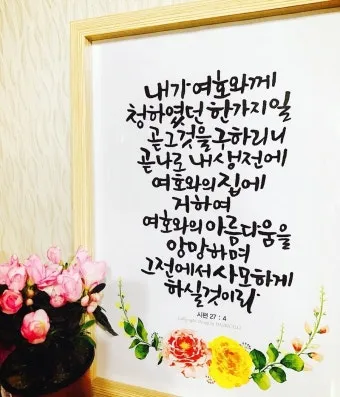 내가 여호와께
청하였던 한가지일
곧 그것을 구하리니
곧 나로 내 생전에
여호와의 집에
거하여
여호와의 아름다움을
앙망하며
그 전에서 사모하게
하실것이라
시편 27 : 4